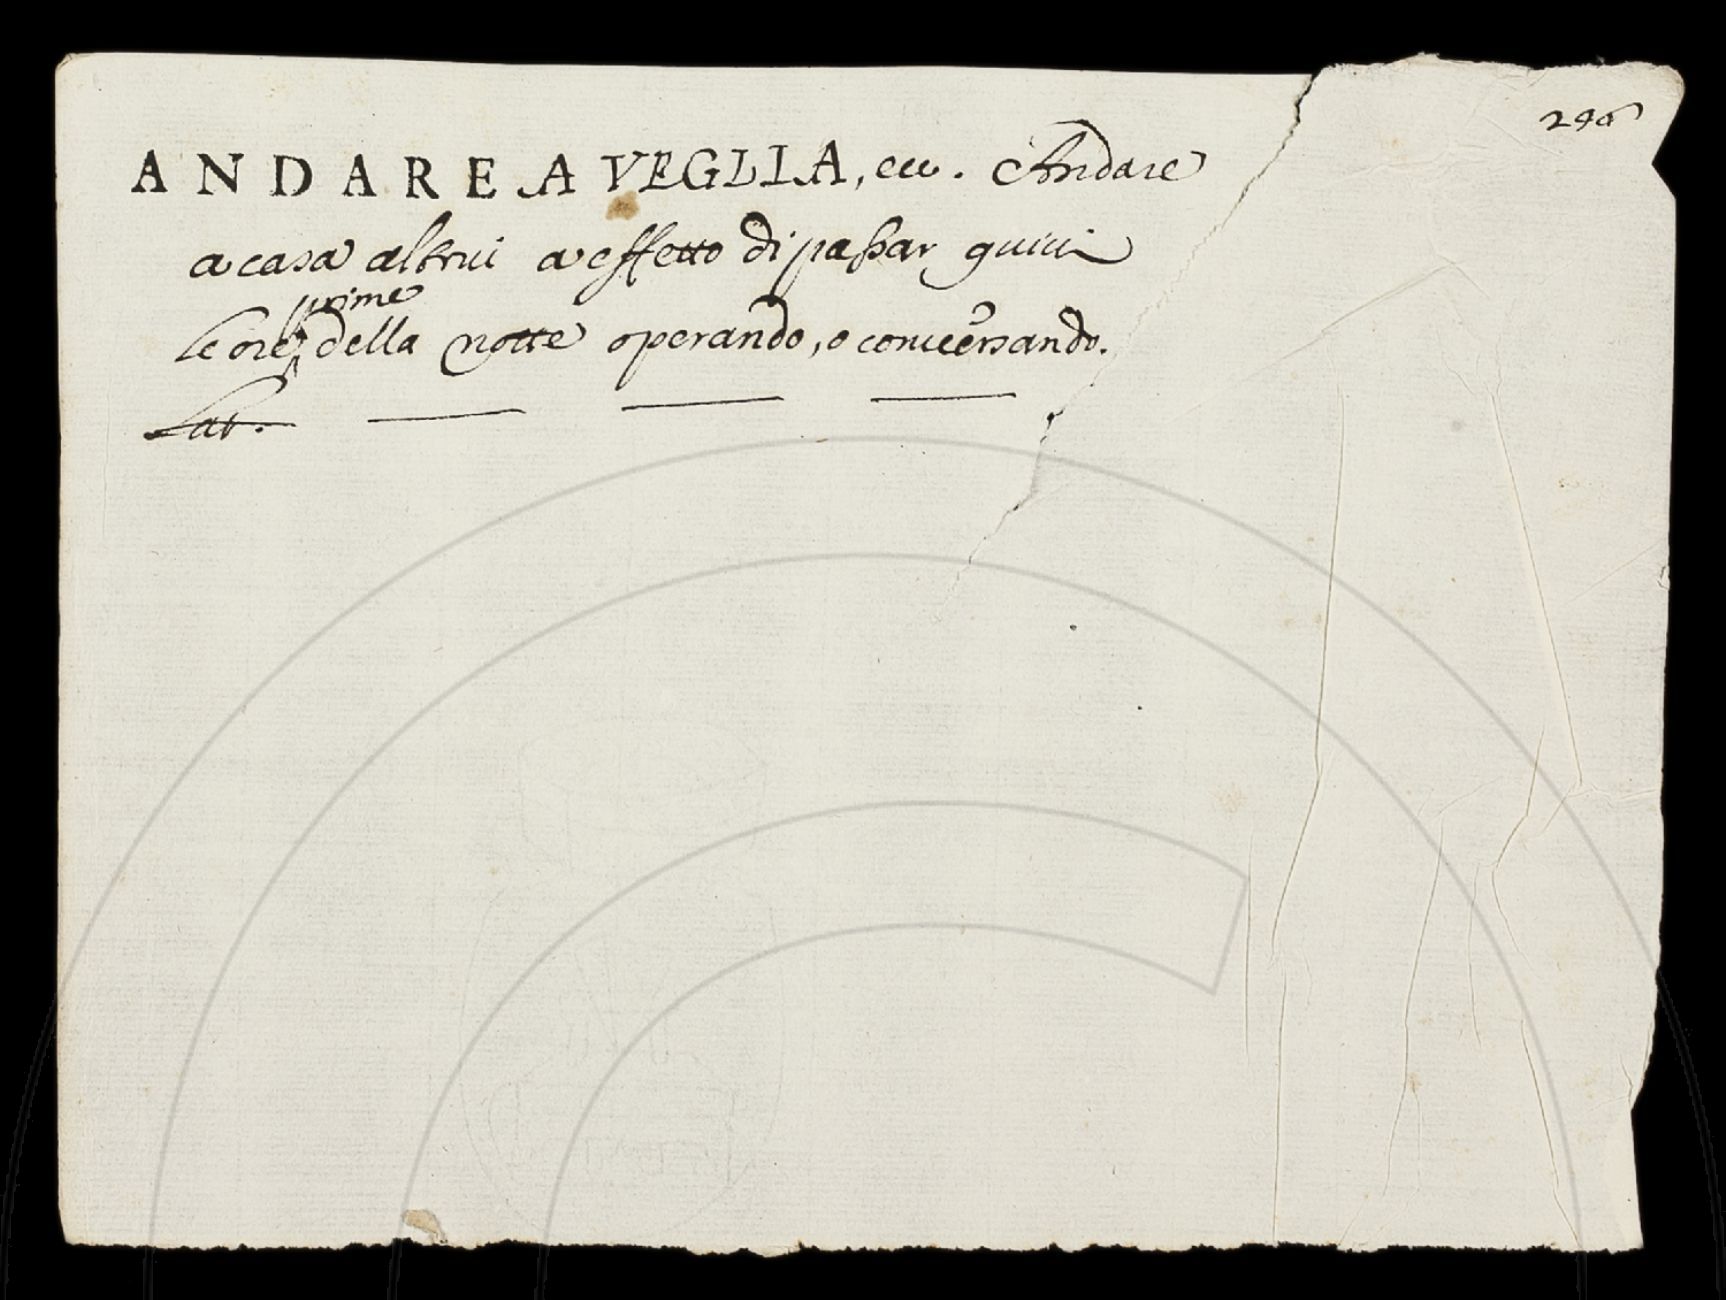 296
ANDARE A VEGLIA, ecc. Andare
a casa altrui a effetto di passar quivi
prime
le ore della notte operando, o conversando.
Lat.